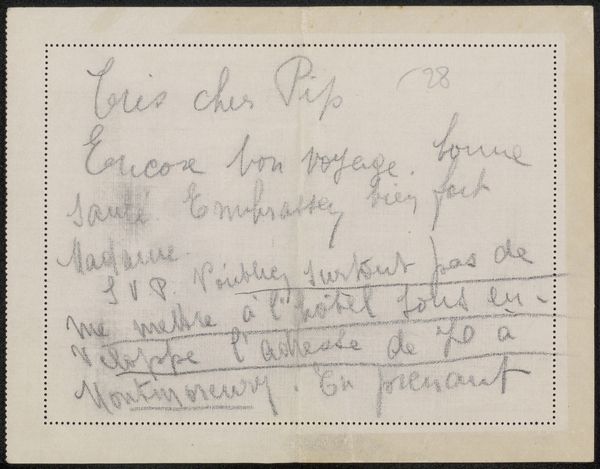 28
Très cher Pip
Encore bon voyage. bonne
santé. Embrassez bien fort
Madame.
S V P. N'oubliez surtout pas de
me mettre à l'hôtel sous en-
veloppe l'adresse de Jo à
Montmorency. En prenant